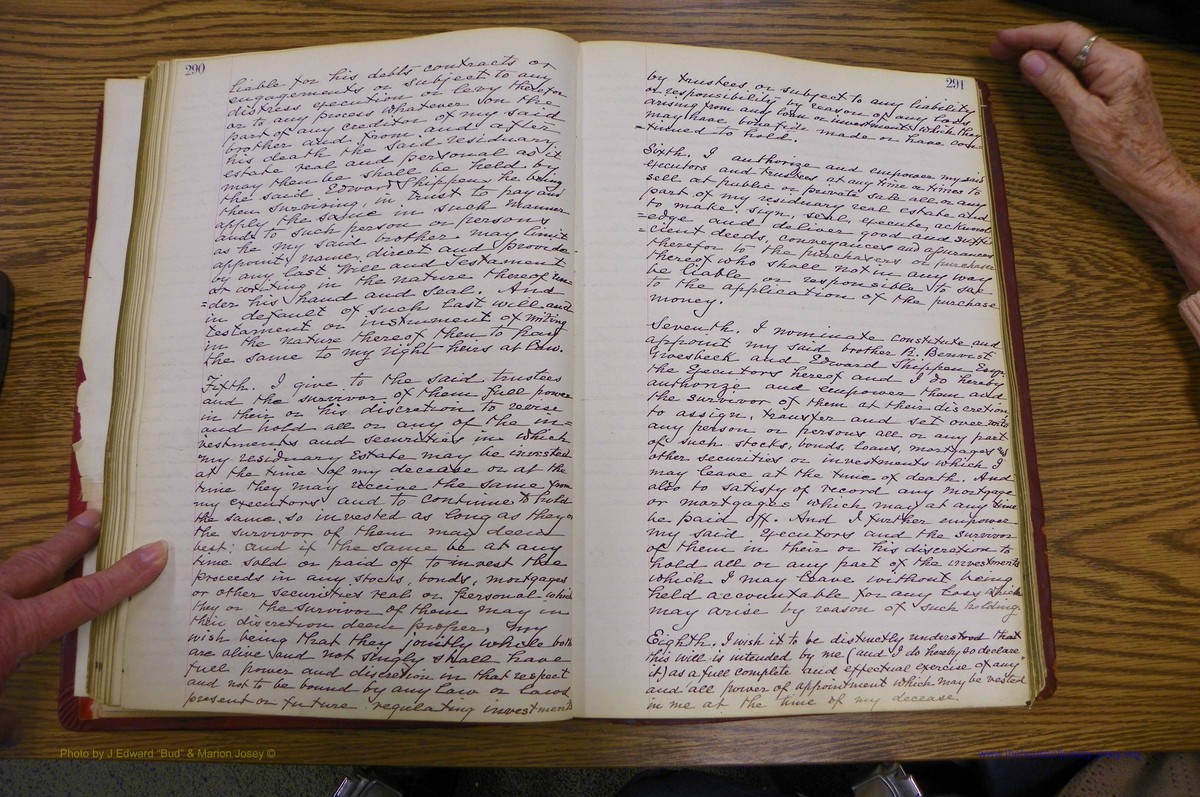 290
liable for his debts contracts or
engagements or subject to any
distress execution or levy therefor
or to any process whatever on the
part of any creditor of my said
brother and from and after
his death the said residuary
estate real and personal as it
may then be shall be held by
the said Edward Shippen, he being
then surviving, in trust to pay and
apply the same in such manner
and to such person or persons
as he my said brother may limit
appoint, name, direct and provide
by any last Will and Testament
or writing in the nature thereof un=
=der his hand and seal. And
in default of such last will and
testament or instrument of writing
in the nature thereof then to pay
the same to my right heirs at law.
Fifth. I give to the said trustees
and the survivor of them full power
in their or his discretion to
and hold all or any of the in=
vestments and securities in which
my residuary Estate may be invested
at the time of my decease or at the
time they may receive the same from
my executors and to continue to hold
the same, so invested as long as they or
the survivor of them may deem
best; and if the same be at any
time sold or paid off to invest the
proceeds in any stocks, bonds, mortgages
or other securities real or personal which
they or the survivor of them may in
their discretion deem proper, my
wish being that they jointly while both
are alive and not singly shall have
full power and discretion in that respect
and not to be bound by any law or laws
present or future regulating investments
291
by trustees or subject to any liability
or responsibility by reason of any loss
arising from any loan or investments which they
may have bona fide made or have con=
=tinued to hold.
Sixth. I authorize and empower my said
executors and trustees at any time or times to
sell at public or private sale all or any
part of my residuary real estate and
to make, sign, seal, execute, acknowl=
=edge and deliver good and suffi=
=cient deeds, conveyances and assurances
therefor to the purchasers or purchaser
thereof who shall not in any way
be liable or responsible to see
to the application of the purchase
money.
Seventh. I nominate constitute and
appoint my said brother H. Benoist
Groesbeck and Edward Shippen Esq.
the Executors hereof and I do hereby
authorize and empower them and
the survivor of them at their discretion
to assign, transfer and set over unto
any person or persons all or any part
of such stocks, bonds, loans, mortgages &
other securities or investments which I
may leave at the time of death. And
also to satisfy of record any mortgage
or mortgages which may at any time
be paid off. And I further empower
my said Executors and the survivor
of them in their or his discretion to
hold all or any part of the investments
which I may leave without being
held accountable for any loss which
may arise by reason of such holding.
Eighth. I wish it to be distinctly understood that
this will is intended by me (and I do hereby so declare
it) as a full complete and effectual exercise of any
and all power of appointment which may be vested
in me at the time of my decease.
Photo by J Edward "Bud" & Marion Josey ©